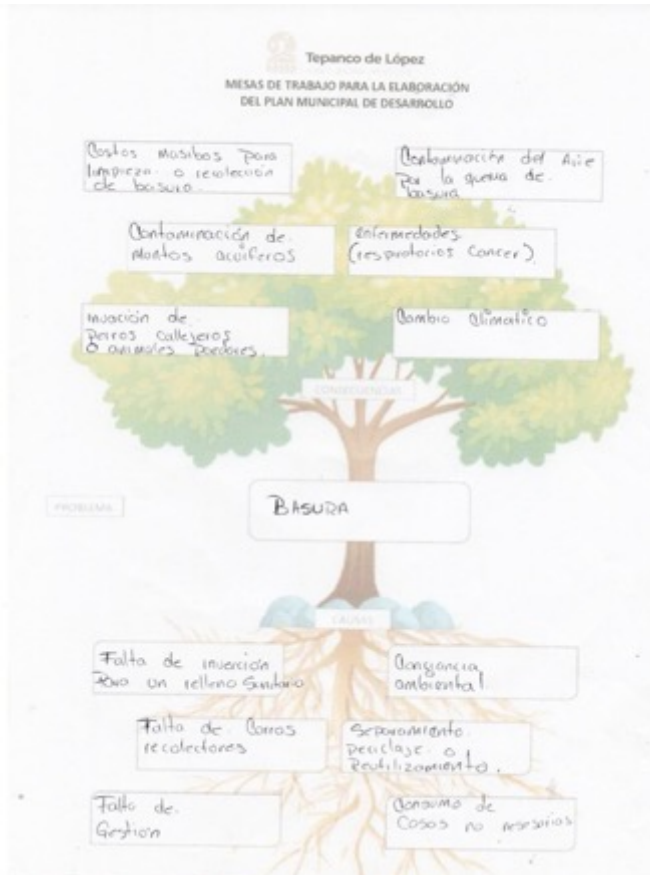 Tepanco de López
MESAS DE TRABAJO PARA LA ELABORACIÓN
DEL PLAN MUNICIPAL DE DESARROLLO
Costos masibos para
limpieza o recolección
de basura.
Contaminación del Aire
Por la quema de
basura
Contaminación de
Mantos acuiferos
enfermedades
(respiratorios Cancer)
invacion de
Perros Callejeros
O animales
Cambio Climatico
CONSECUENCIAS
PROBLEMA
BASURA
CAUSAS
Falta de inverción
Para un relleno Sanitario
Conciancia
ambiental
Falta de Carros
recolectores
Separamiento
Reciclaje o
Reutilizamiento.
Falta de
Gestión
Consumo de
Cosas no nesesarias